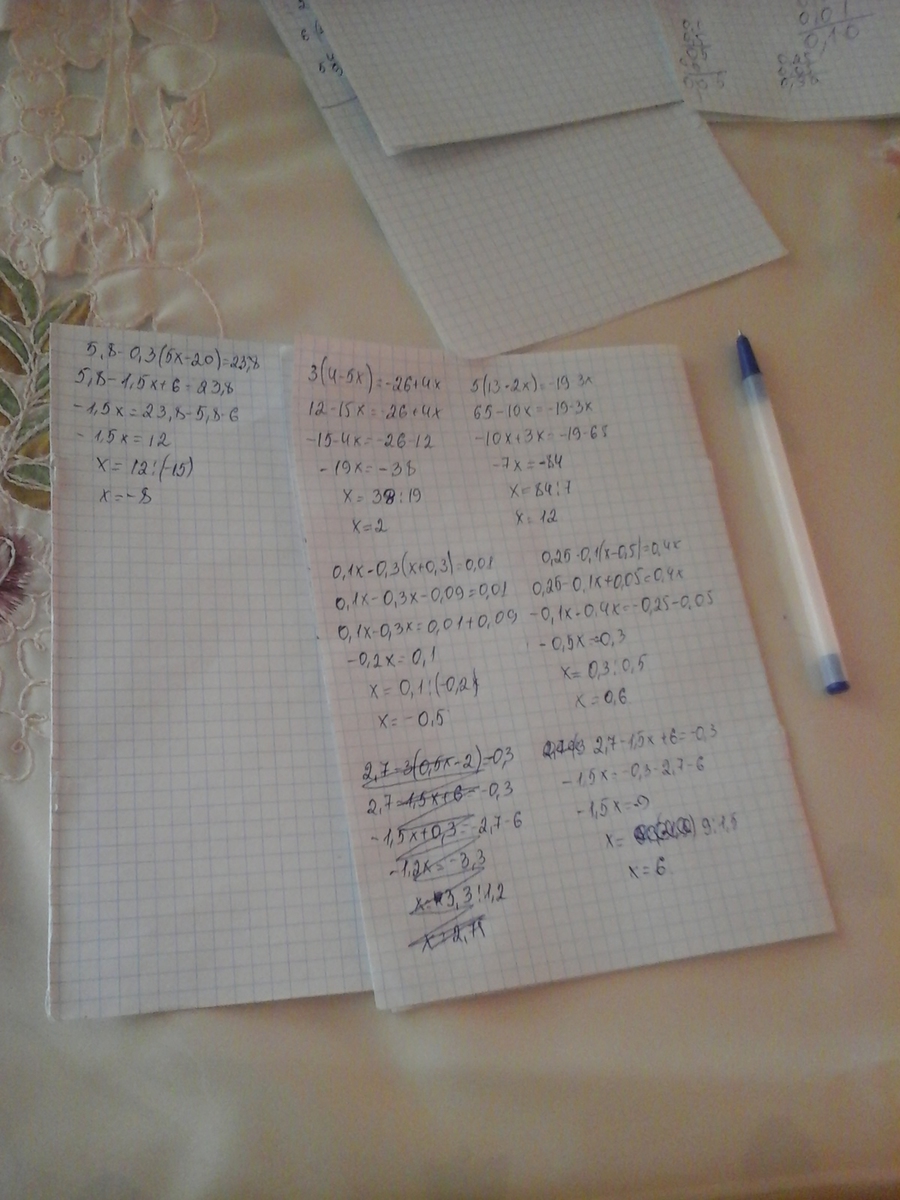 5,8-0,3(5x-20)=23,8
5,8-1,5x+6=23,8
-1,5x=23,8-5,8-6
-1,5x=12
x=12:(-15)
x=-8
3(4-5x)=-26+4x
12-15x=-26+4x
-15-4x=-26-12
-19x=-38
x=38:19
x=2
5(13-2x)=-19-3x
65-10x=-19-3x
-10x+3x=-19-65
-7x=-84
x=84:7
x=12
0,1x-0,3(x+0,3)=0,01
0,1x-0,3x-0,09=0,01
0,1x-0,3x=0,01+0,09
-0,2x=0,1
x=0,1:(-0,2)
x=-0,5
0,25-0,1(x-0,5)=0,4x
0,25-0,1x+0,05=0,4x
-0,1x-0,4x=-0,25-0,05
-0,5x=-0,3
x=0,3:0,5
x=0,6
2,7-3(0,5x-2)=-0,3
2,7-1,5x+6=-0,3
-1,5x+0,3=-2,7-6
-1,2x=-3,3
x=3,3:1,2
x=2,71
2,7-1,5x+6=-0,3
-1,5x=-0,3-2,7-6
-1,5x=-9
x= 9:1,5
x=6
0,01
0,10